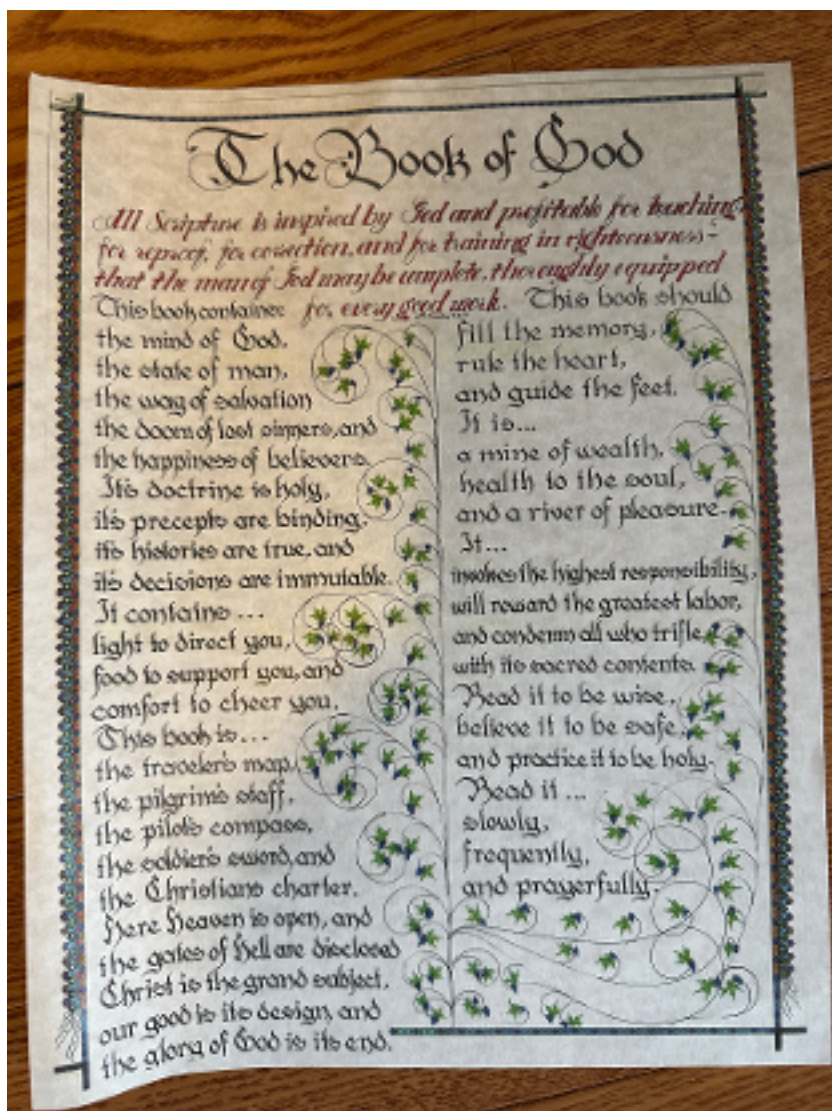 The Book of God
All Scripture is inspired by God and profitable for teaching,
for reproof, for correction, and for training in righteousness-
that the man of God may be complete, thoroughly equipped
for every good work.
This book contains
the mind of God,
the state of man,
the way of salvation
the doom of lost sinners, and
the happiness of believers.
It's doctrine is holy,
it's precepts are binding,
it's histories are true, and
it's decisions are immutable.
It contains ...
light to direct you,
food to support you, and
comfort to cheer you.
This book is ...
the traveler's map,
the pilgrim's staff,
the pilot's compass,
the soldier's sword, and
the Christians charter.
Here Heaven is open, and
the gates of Hell are disclosed
Christ is the grand subject,
our good is its design, and
the glory of God is its end.
This book should
fill the memory,
rule the heart,
and guide the feet.
It is...
a mine of wealth,
health to the soul,
and a river of pleasure.
It...
involves the highest responsibility,
will reward the greatest labor,
and condemn all who trifle
with its sacred contents.
Read it to be wise,
believe it to be safe,
and practice it to be holy.
Read it ...
slowly,
frequently,
and prayerfully.